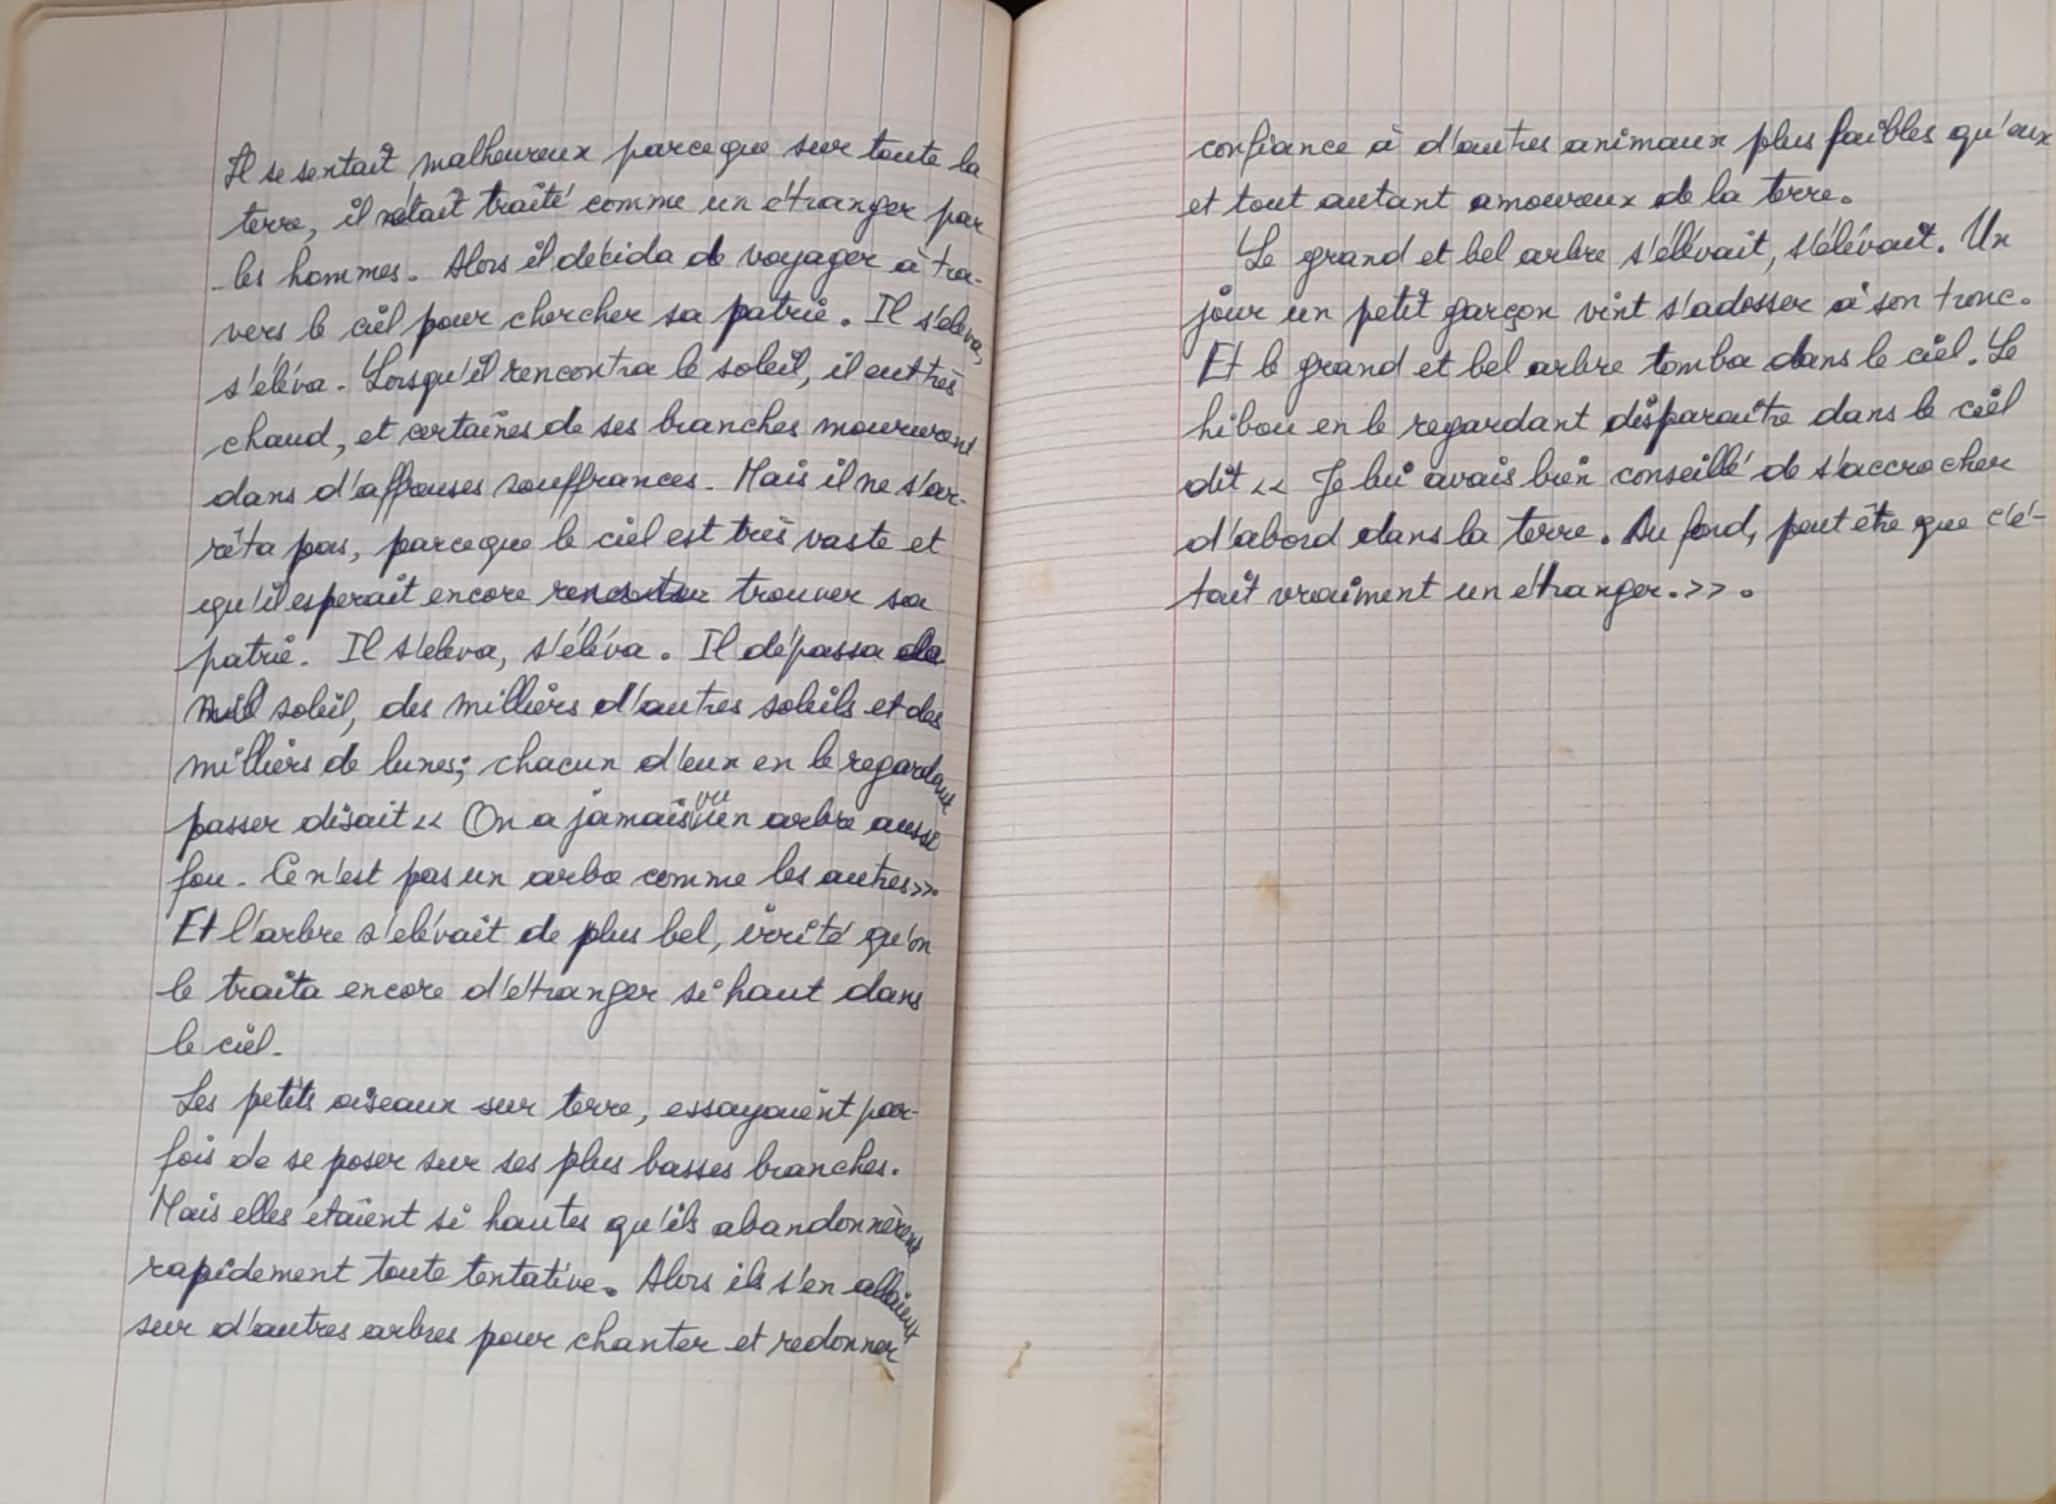 Il se sentait malheureux parceque sur toute la
terre, il était traité comme un étranger par
les hommes. Alors il décida de voyager à tra-
vers le ciel pour chercher sa patrie. Il s'eleva,
s'éléva. Lorsqu'il rencontra le soleil, il eut très
chaud, et certaines de ses branches moururent
dans d'affreuses souffrances. Mais il ne s'ar-
rêta pas, parceque le ciel est très vaste et
qu'il esperait encore trouver sa
patrie. Il s'eleva, s'éléva. Il dépassa
soleil, des milliers d'autres soleils et des
milliers de lunes; chacun d'eux en le regardant
passer disait << On a jamais vu un arbre aussi
fou. Ce n'est pas un arbre comme les autres>>.
Et l'arbre s'elévait de plus bel, irrité qu'on
le traita encore d'étranger si haut dans
le ciel.
Les petits oiseaux sur terre, essayaient par-
fois de se poser sur ses plus basses branches.
Mais elles étaient si hautes qu'ils abandonnèrent
rapidement toute tentative. Alors ils s'en allaient
sur d'autres arbres pour chanter et redonner
confiance à d'autres animaux plus faibles qu'eux
et tout autant amoureux de la terre.
Le grand et bel arbre s'élévait, s'élévait. Un
jour un petit garçon vint s'adosser à son tronc.
Et le grand et bel arbre tomba dans le ciel. Le
hibou en le regardant disparaitre dans le ciel
dit << Je lui avais bien conseillé de s'accrocher
d'abord dans la terre. Au fond, peut être que c'é-
tait vraiment un étranger.>>.